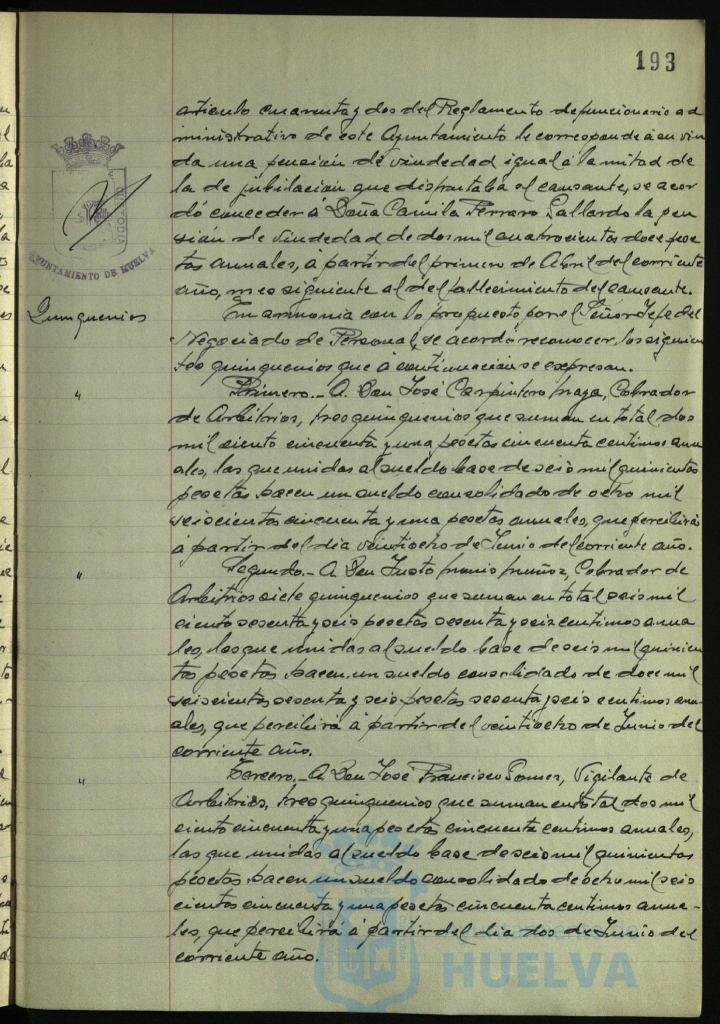 193
articulo cuarenta y dos del Reglamento de funcionario ad
ministrativo de este Ayuntamiento le corresponde á su viu
da una pension de viudedad igual á la mitad de
la de jubilación que disfrutaba el causante, se acor
dó conceder á Doña Camila Ferraro Gallardo la pen
sión de viudedad de dos mil cuatrocientas doce pese
tas anuales, á partir del primero de Abril del corriente
año, mes siguiente al del fallecimiento del causante.
Quinquenios
En armonia con lo propuesto por el Señor Jefe del
Negociado de Personal, se acordó reconocer, los siguien
tes quinquenios que á continuación se expresan.
"
Primero.- A Don José Carpintero Fraga, Cobrador
de Arbitrios, tres quinquenios que suman en total dos
mil ciento cincuenta y una pesetas cincuenta centimos anu
ales, las que unidas al sueldo base de seis mil quinientas
pesetas hacen un sueldo consolidado de ocho mil
seiscientas cincuenta y una pesetas anuales, que percibirá
á partir del dia veintiocho de Junio del corriente año.
"
Segundo.- A Don Justo Muñoz, Cobrador de
Arbitrios siete quinquenios que suman en total seis mil
ciento sesenta y seis pesetas sesenta y seis centimos anua
les, las que unidas al sueldo base de seis mil quinien
tas pesetas hacen un sueldo consolidado de doce mil
seiscientas sesenta y seis pesetas sesenta y seis centimos anu
ales, que percibirá á partir del veintiocho de Junio del
corriente año.
"
Tercero.- A Don José Francisco Gomez, Vigilante de
Arbitrios, tres quinquenios que suman en total dos mil
ciento cincuenta y una pesetas cincuenta centimos anuales,
las que unidas al sueldo base de seis mil quinientas
pesetas hacen un sueldo consolidado de ocho mil seis
cientas cincuenta y una pesetas cincuenta centimos anua-
les, que percibirá á partir del dia dos de Junio del
corriente año.
CUSTODIA
AYUNTAMIENTO DE HUELVA
HUELVA